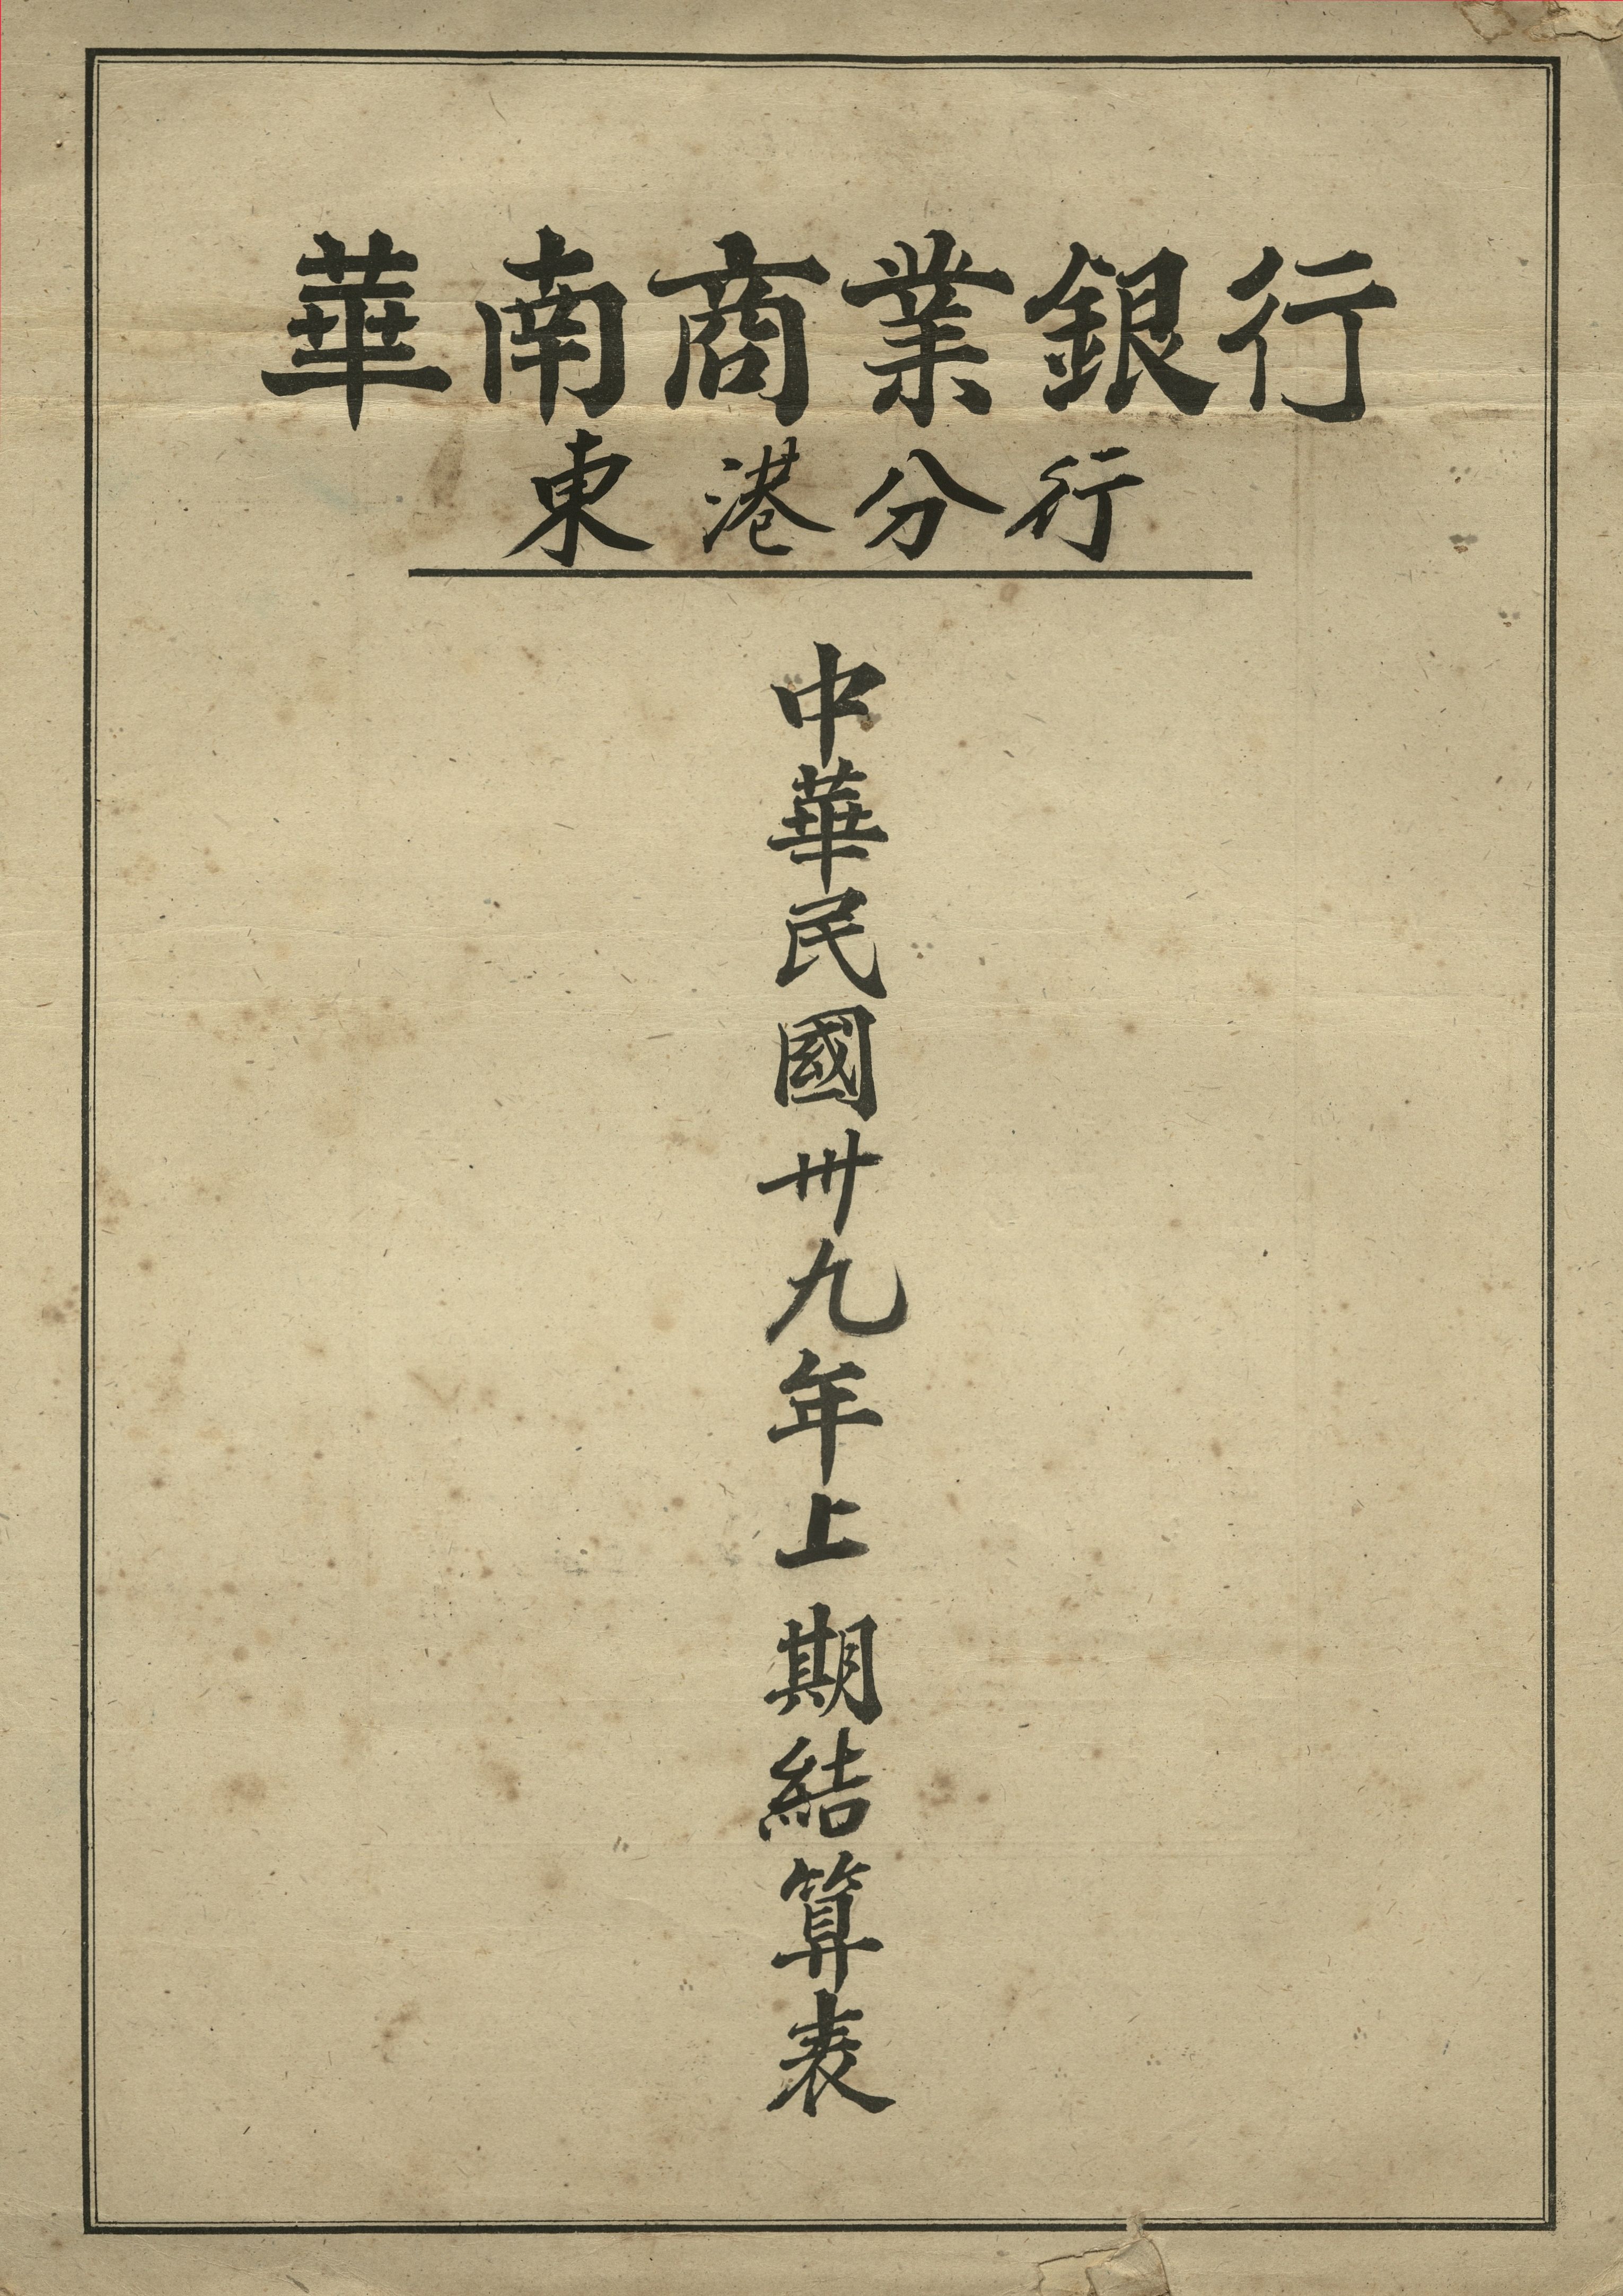 華南商業銀行
東港分行
中華民國卅九年上期結算表